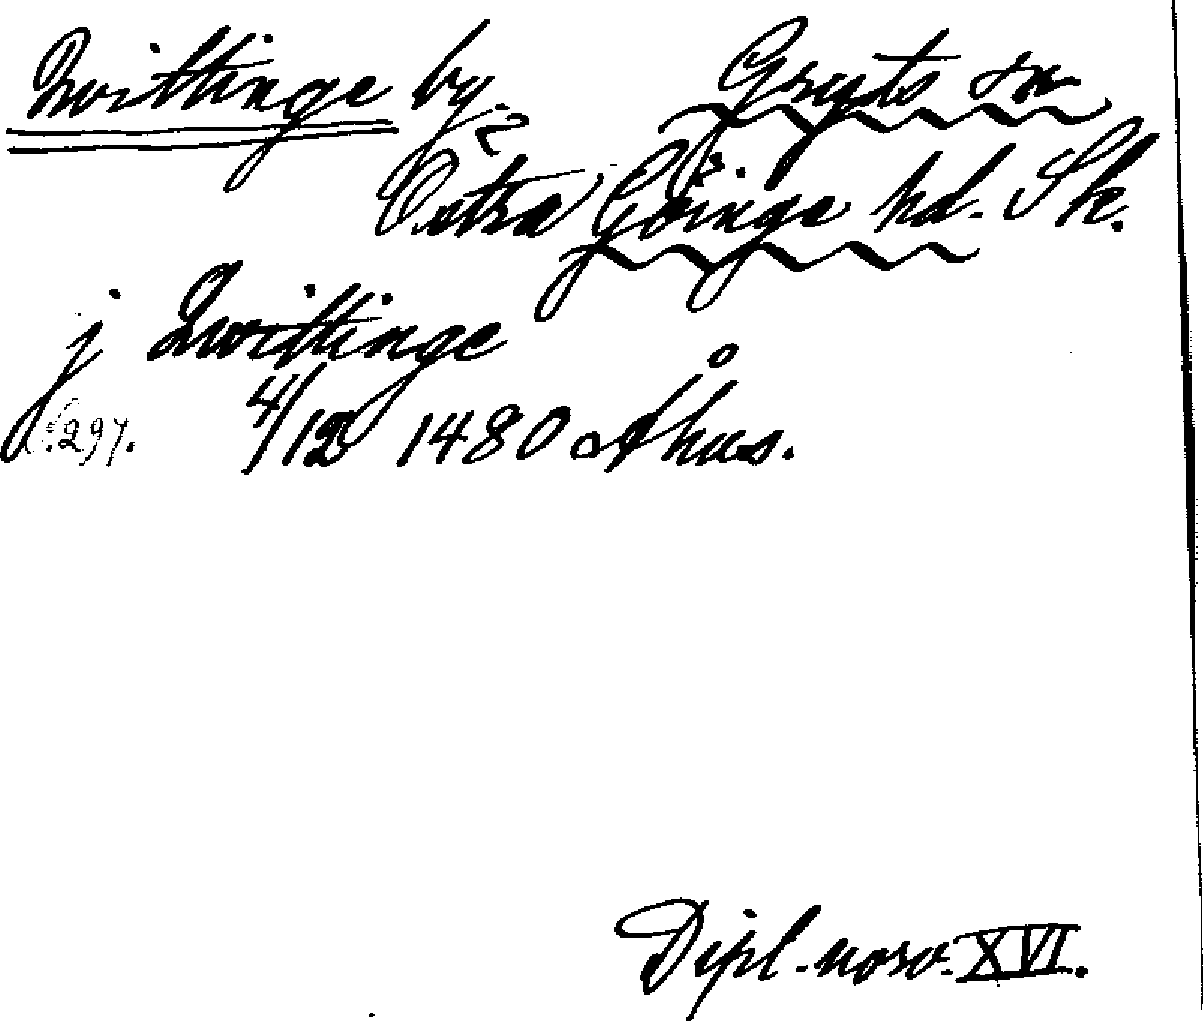 Qwittinge by. Gryts sn
Östra Göinge hd. Sk.
j Qwittinge
s. 297. 4/12 1480 Åhus.
Dipl. norv. XVI.